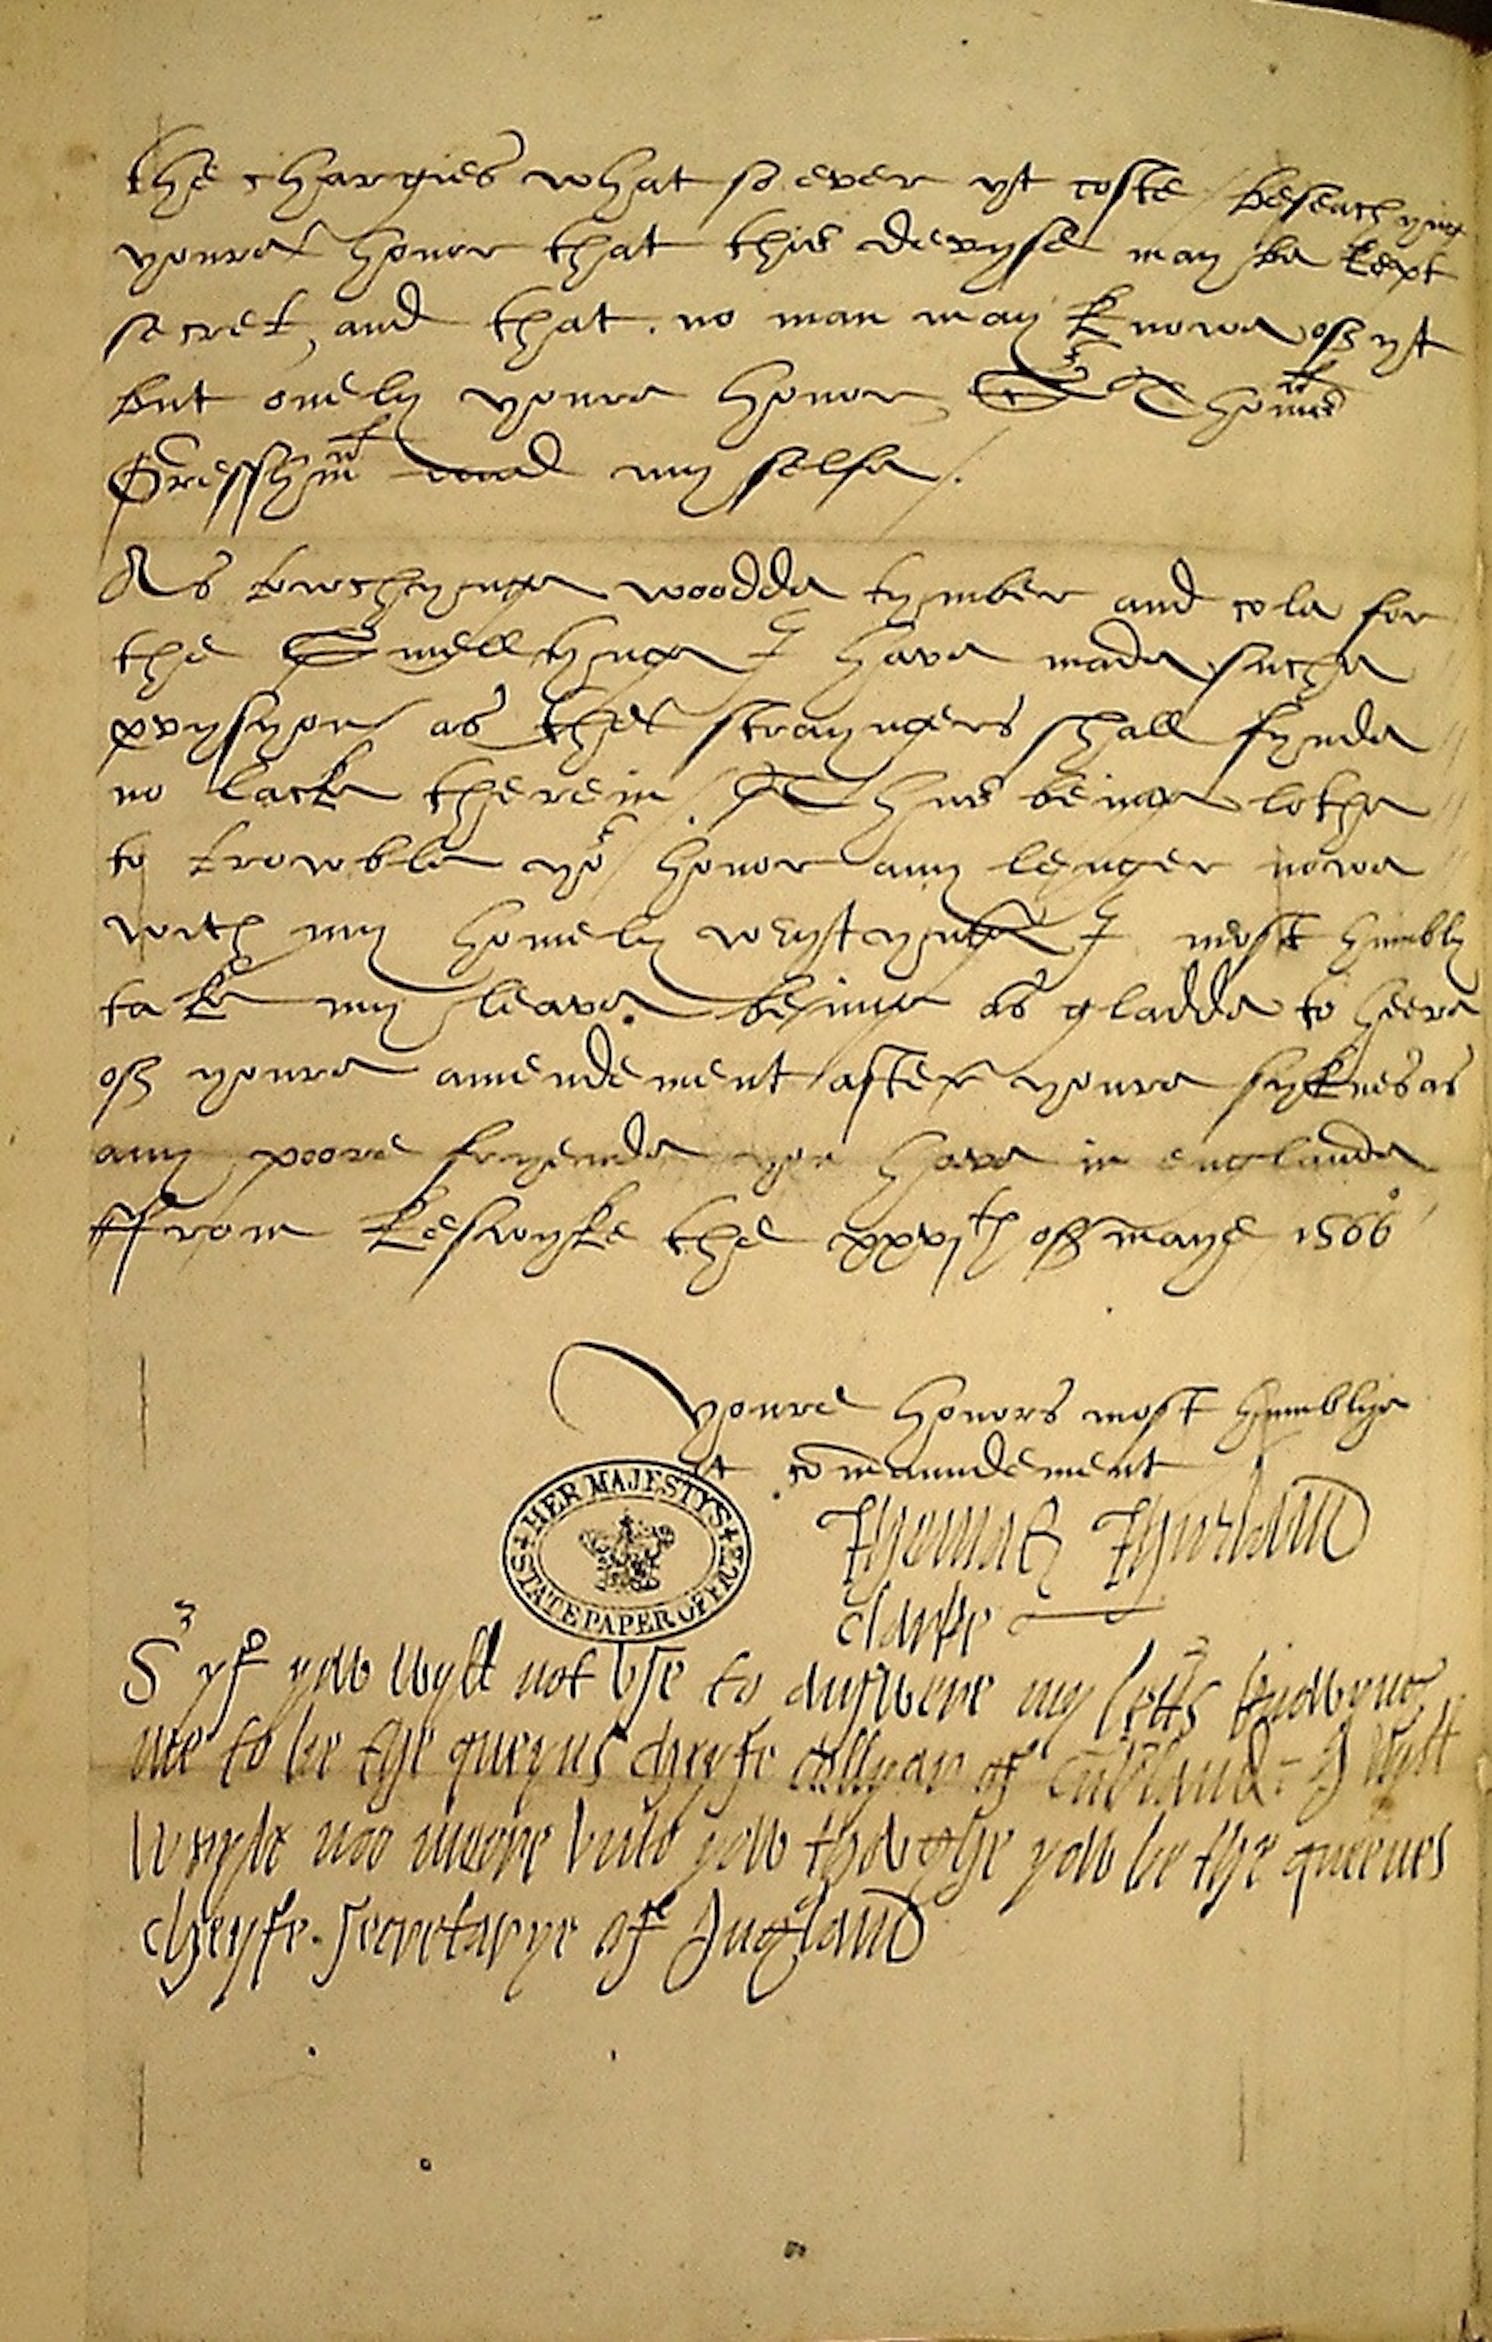 the chargies what so ever yt coste / beseachying
youre honor that this devyse may be kept
secret, and that no man may knowe off yt
but onely youre honor, Sr Thomas
Gressham and my selfe /.
As towchynge woodde tymber and cole for
the Smelltynge I have made suche
pvysyon as the strayngers shall fynde
no lacke therein /. Thus beinge lothe
to trowble yor honor any lenger nowe
with my homely wrytynge I most humbly
take my leave. beinge as gladde to heere
off youre amendement after youre syknes as
any poore fryende yow have in englande
ffrom keswyke the xxvjth off maye 1566
Youre honors most humblye
at commaundement
Thomas Thurland
clarke
HER MAJESTYS
STATE PAPER OFFICE
Sr yf yow wyll not vse to answere my letters knowyng
me to be the quenys cheyfe collyar of Cumberland - I wyll
wryte noo moore vnto yow thowghe yow be the queenes
cheyfe secretarye of Ingland